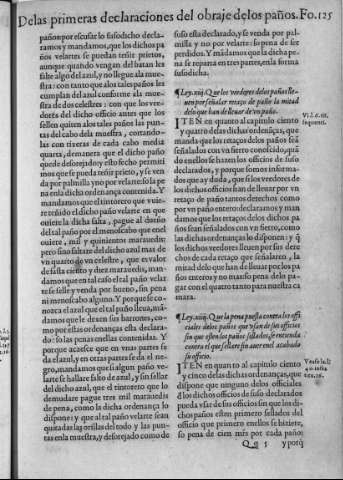 De las primeras declaraciones del obraje delos paños. Fo. 125
pañon por escusar lo susodicho decla-
ramos y mandamos, que los dichos pa
ños velartes se puedan teñir prietos,
aunque quando vengan del batan les
falte algo del azul, y no llegue ala mue
stra: con tanto que alos tales paños les
cumplan del azul conforme ala mues
tra de dos celestres: con que los vee-
dores del dicho officio antes que los
sellen quiten alos tales paños las pun
tas del cabo dela muestra, cortando-
las con tiseras de cada cabo media
quarta, demanera que el dicho paño
quede desorejado: y esto fecho permiti
mos que se pueda teñir prieto, y se ven
da por palmilla y no por velarte: so la pe
na enla dicha ordenança contenida. Y
mandamos que el tintorero que
re teñido el dicho paño velarte en que
ouiere la dicha falta, pague al dueño
del tal paño por el menoscabo que enel
ouiere, mil y quinientos marauedis:
pero sino faltare del dicho azul mas de
vn quarto de vn celestre, que en valor
de falta ciento y diez marauedis, man-
damos que en tal caso el tal paño velar
te se selle y venda por bueno, sin pena
ni menoscabo alguno. Y porque se co-
nozca el azul que el tal paño lleua, má-
damos que le dexen sus harcotes, co-
mo por estas ordenanças esta declara-
do: so las penas enellas contenidas. Y
porque acaesce que en vna partes fa
da el azul, y en otras partes se da el ne-
gro, mandamos que si algun paño ve-
larte se hallare falso de azul, y sin sellar
del dicho azul, que el tintorero que lo
demudare pague tres mil marauedis
de pena, como la dicha ordenança lo
dispone: y que al tal paño velarte sean
quitadas las orillas del todo y las pun-
tas enla muestra, y desorejado como de
suso esta declarado, y se venda por pal-
milla y no por velarte: so pena de ser
perdidos. Y mãdamos que la dicha pe-
na se reparta en tres partes, enla forma
susodicha.
¶ Ley .xiij. Que los veedores delos paños lle-
uen por señalar retaço de paño la mitad
delo que han de lleuar de vn paño.
ITEN en quanto al capitulo ciento
y quatro delas dichas ordenãças, que
manda que los retaços delos paños seã
señalados con vn sierro conoscido, prã
do enellos se hazen los officios de suso
declarados, y porque somos informa-
dos que ay duda, que si los veedores de
los dichos officios han de lleuar por vn
retaço de paño tantos derechos como
por vn paño entero: declaramos y man
damos que los retaços delos dichos pa
ños sean señalados con vn sierro, como
las dichas ordenanças lo disponen: y q̃
los dichos veedores lleuen por sus dere
chos de cada retaço que señalaren, la
mitad delo que han de lleuar por los pa
ños enteros y no mas: so pena delo pa-
gar con el quatro tanto para nuestra ca
mara.
¶ Ley .xiiij. Que la pena puesta contra los offi
ciales delos paños que vsan de sus officios
sin que esten los paños sellados, se entienda
contra el que sellare sin auer enel acabado
su officio.
ITEN en quanto al capitulo ciento
y cinco delas dichas ordenanças, que
dispone que ninguno delos officiales
dlos dichos officios de suso declarados
pueda vsar de sus officios sin que los di-
chos paños esten primero sellados del
officio que primero enellos se hiziere,
so pena de cien mrs por cada paño:
Qq 5
y porq̃